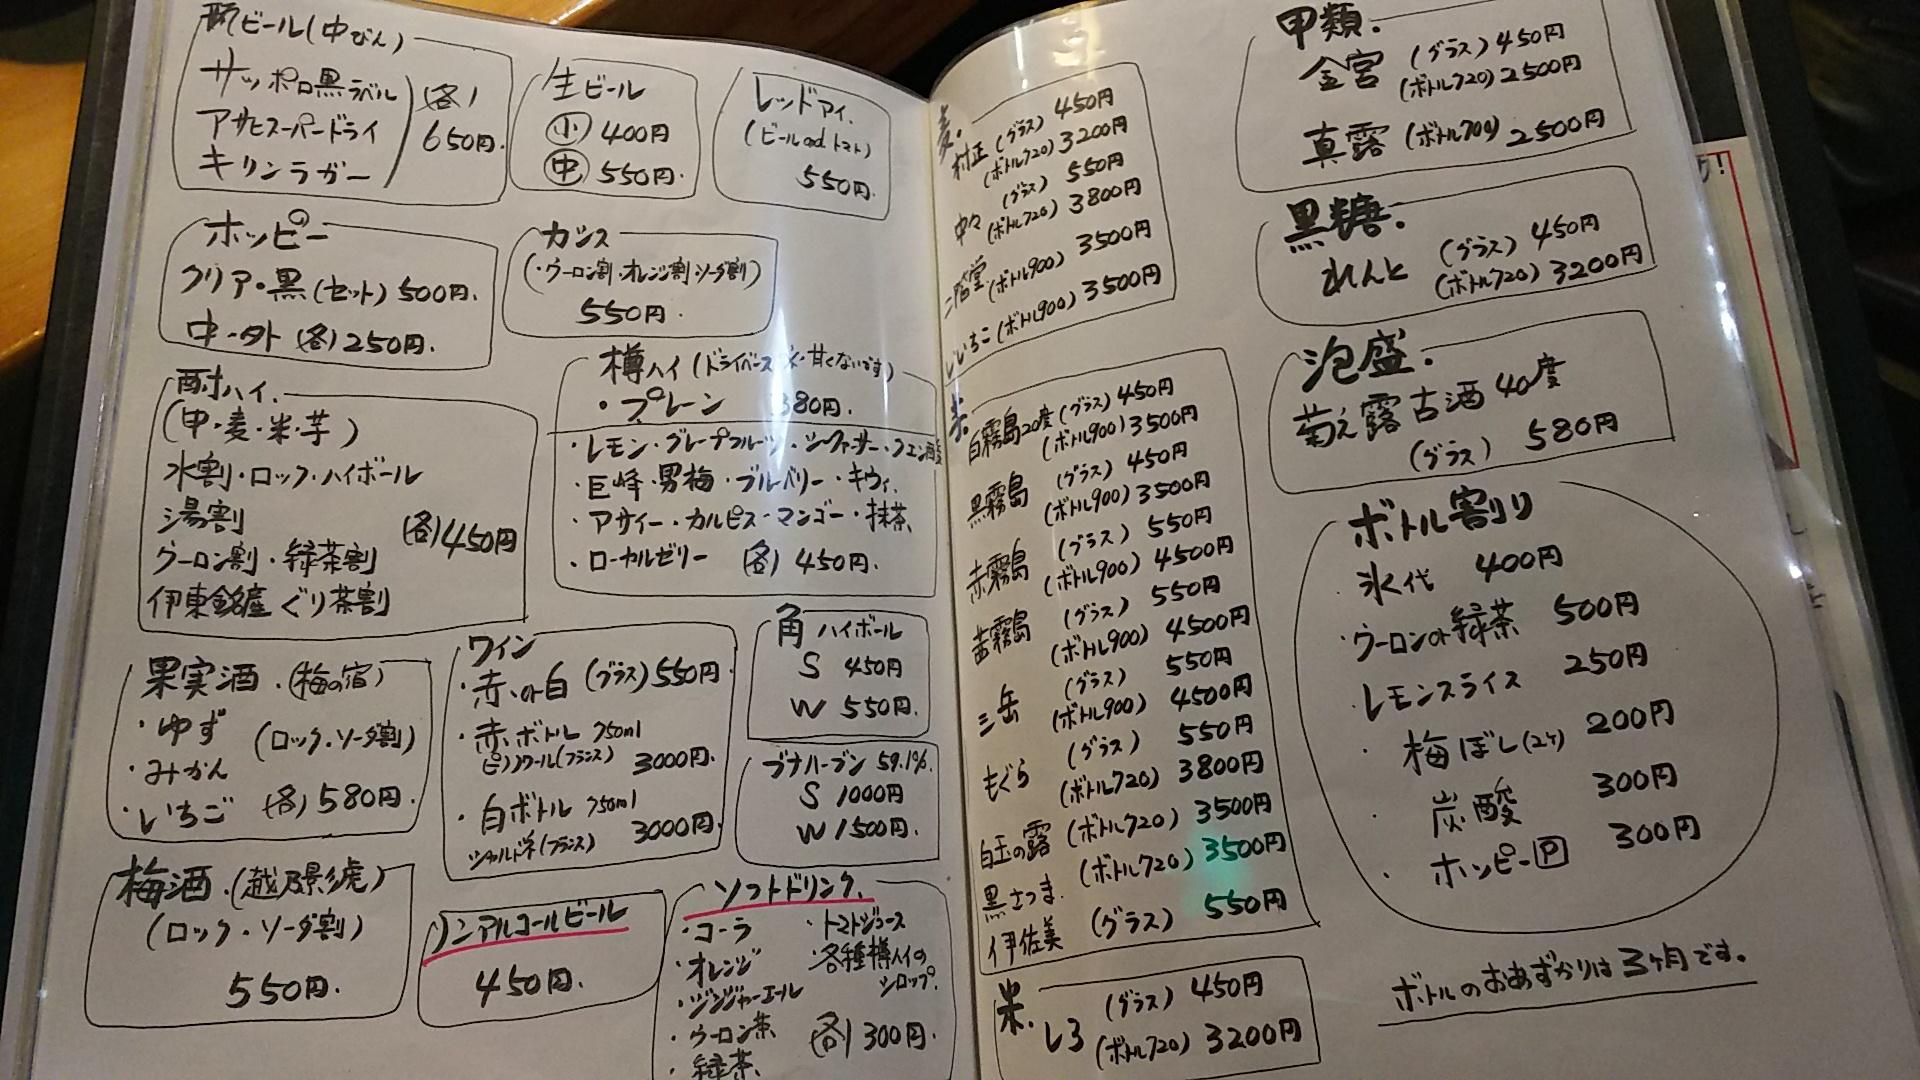 瓶ビール(中びん)
サッポロ黒ラベル
アサヒスーパードライ
キリンラガー
(各)
650円.
生ビール
小 400円
中 550円.
レッドアイ.
(ビールand トマト)
550円.
ホッピー
クリア・黒(セット)500円.
中・外 (各)250円.
カシス
(・ウーロン割・オレンジ割・ソーダ割)
550円.
酎ハイ.
(甲・麦・米・芋)
水割・ロック・ハイボール
湯割
ウーロン割・緑茶割
伊東銘産 ぐり茶割
(各)450円
樽ハイ(ドライベース 甘くないです)
・プレーン 380円.
・レモン・グレープフルーツ・シークァーサー・クエン酸
・巨峰・男梅・ブルーベリー・キウイ.
・アサイー・カルピス・マンゴー・抹茶
・ローカルゼリー (各)450円.
果実酒.(梅の宿)
・ゆず
・みかん
・いちご
(ロック・ソーダ割)
(各)580円.
ワイン
・赤or白(グラス)550円.
・赤ボトル 750ml
ピノノワール(フランス) 3000円.
・白ボトル 750ml
シャルドネ(フランス) 3000円.
角ハイボール
S 450円
W 550円.
ブナハーブン 59.1%.
S 1000円
W 1500円.
梅酒.(越乃景虎)
(ロック・ソーダ割)
550円.
ノンアルコールビール
450円.
ソフトドリンク.
・コーラ
・オレンジ
・ジンジャーエール
・ウーロン茶
・緑茶
・トマトジュース
・各種樽ハイの
シロップ.
(各)300円.
麦.
村正(グラス)450円
(ボトル720)3200円
中々(グラス)550円
(ボトル720)3800円
二階堂(ボトル900)3500円
いいちこ(ボトル900)3500円
白霧島20度(グラス)450円
(ボトル900)3500円
黒霧島(グラス)450円
(ボトル900)3500円
赤霧島(グラス)550円
(ボトル900)4500円
茜霧島(グラス)550円
(ボトル900)4500円
三岳(グラス)550円
(ボトル900)4500円
もぐら(グラス)550円
(ボトル720)3800円
白玉の露(ボトル720)3500円
黒さつま(ボトル720)3500円
伊佐美(グラス)550円
米.
しろ(グラス)450円
(ボトル720)3200円
甲類.
金宮(グラス)450円
(ボトル720)2500円
真露(ボトル700)2500円
黒糖.
れんと(グラス)450円
(ボトル720)3200円
泡盛.
菊之露古酒40度
(グラス)580円
ボトル割り
・氷代 400円
・ウーロンor緑茶 500円
・レモンスライス 250円
・梅ぼし(2ヶ) 200円
・炭酸 300円
・ホッピーP 300円
ボトルのおあずかりは3ヶ月です.